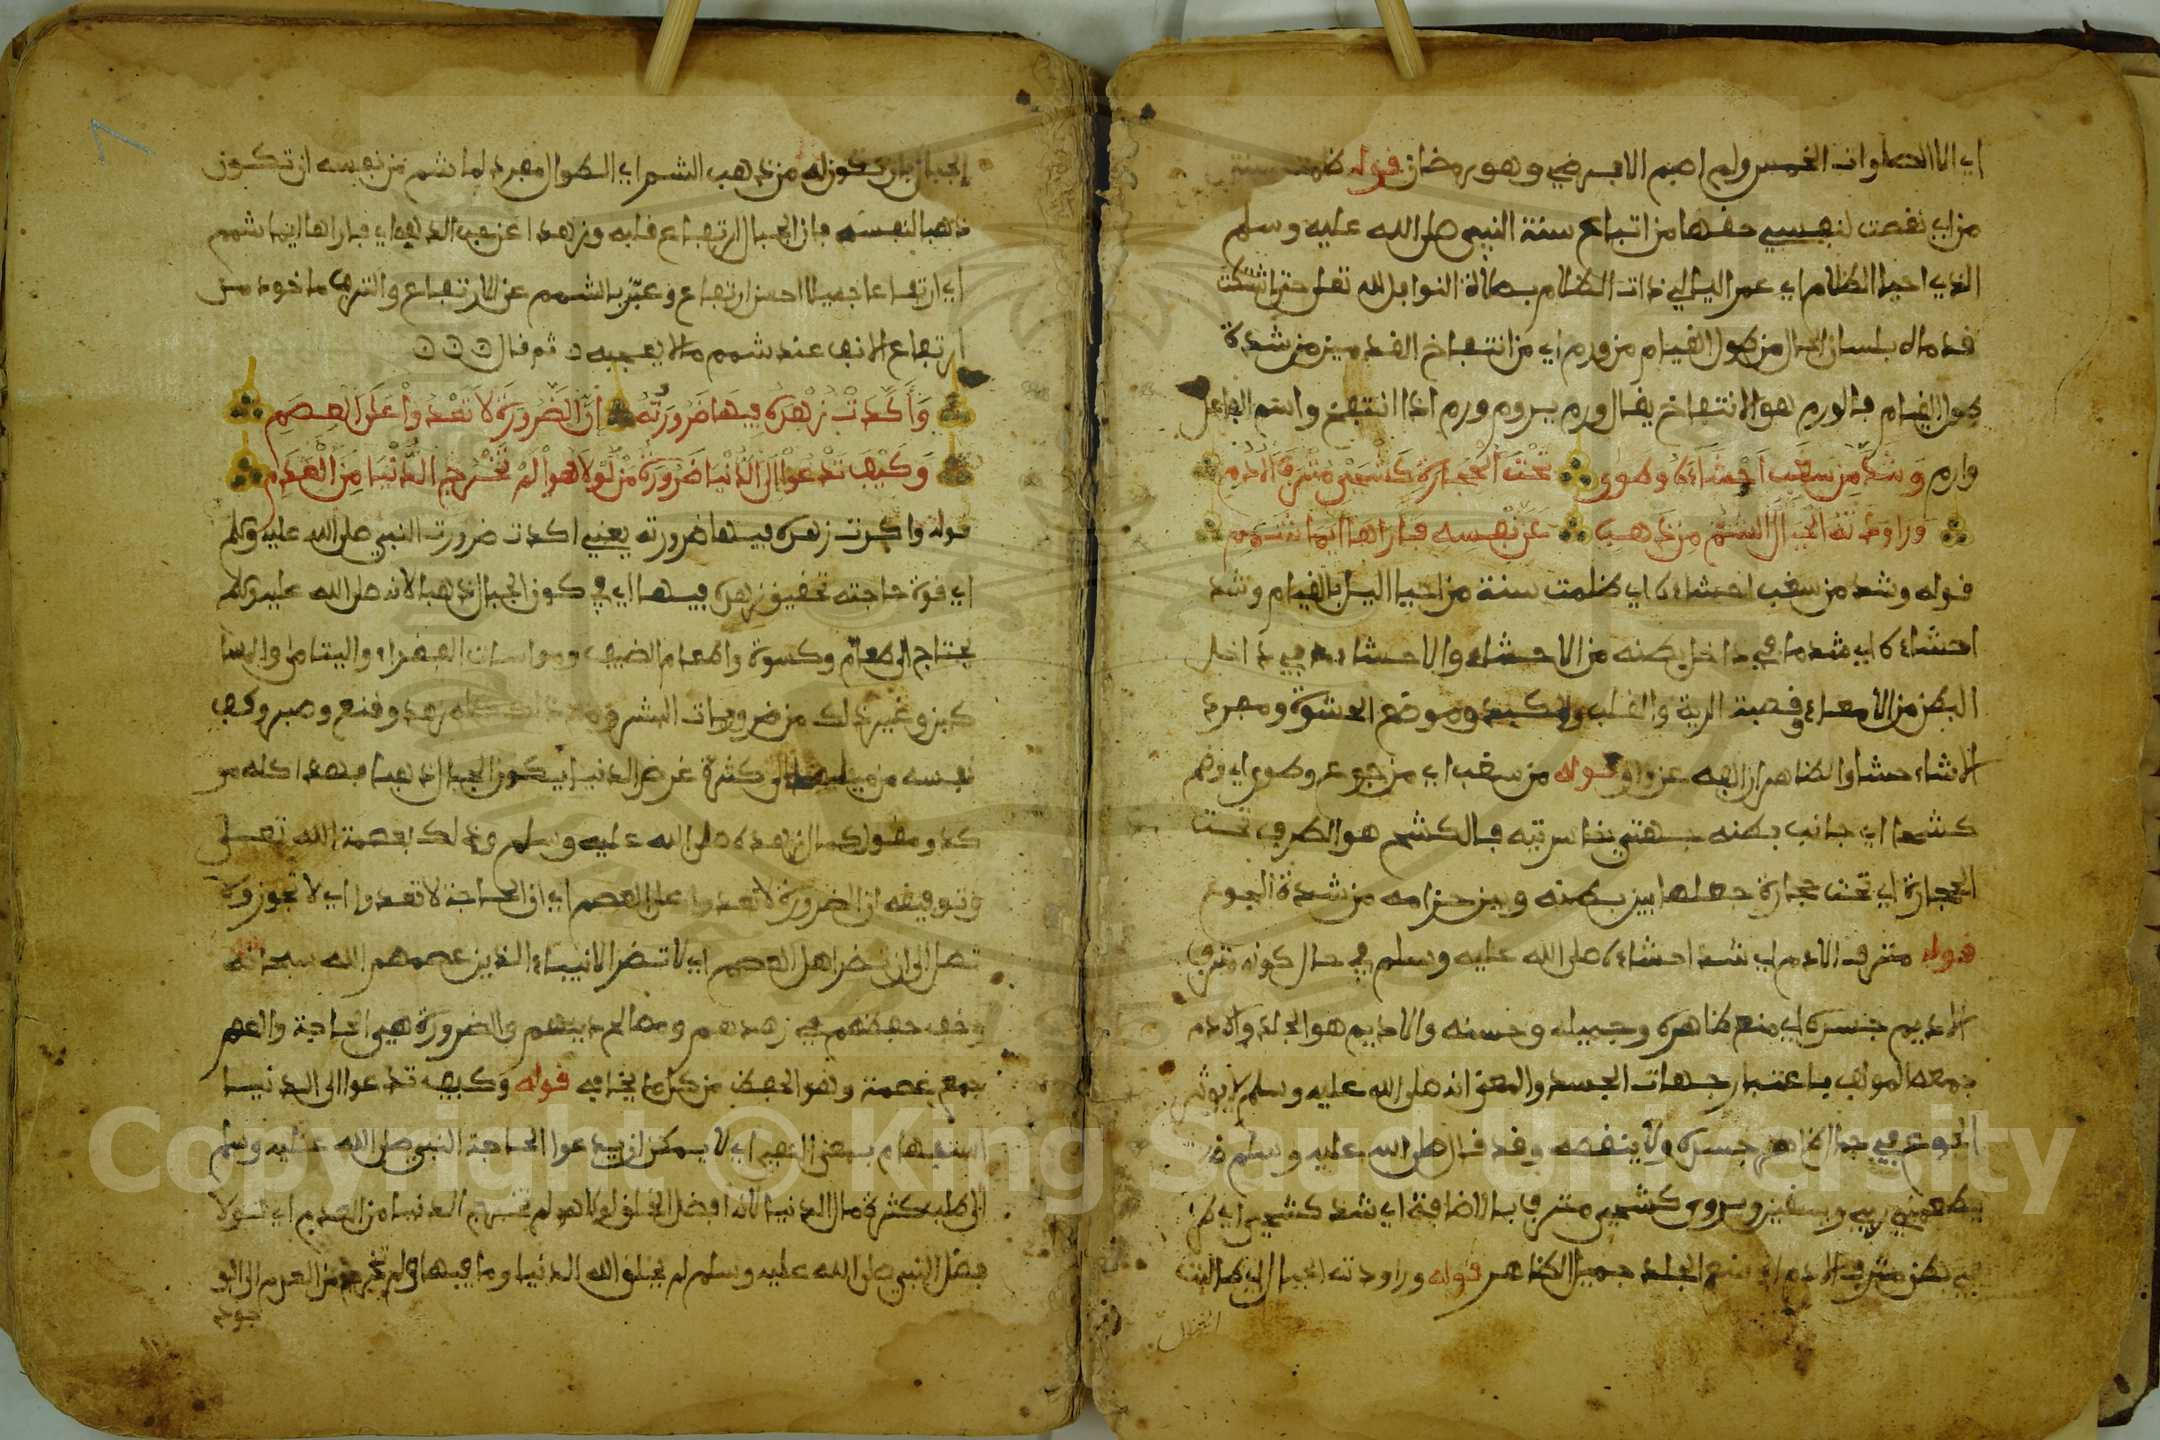 اي الا الصلوات الخمس ولم اصم الا فرضي وهو رمضان قوله ظلمت سنة
من اي نقصت لنفسي حقها من اتباع سنة النبي صلى الله عليه وسلم
الذي احيا الظلام اي عمر اليل اي ذات الظلام بصلاة النوافل لله تعلى حتى اشتكت
قدماه بلسان الحال من طول القيام من ورم اي من انتفاخ القدمين من شدة
طول القيام فالورم هو الانتفاخ يقال ورم يروم ورم اذا انتفخ واسم الفاعل
وارم وَشَدَّ مِن سَغَبٍ اَحْشَاءَهُ وَطَوَى تَحْتَ الْحِجَارَةِ كَشْحًى مُتْرَفَ الْاَدَمِ
وَرَاوَدَتْهُ الْجِبَالُ الشُّمُّ مِن ذَهَبٍ عَن نَّفْسِهِ فَاَرَاهَا اَيَّمَا شَمَمِ
قوله وشد من سغب احشاءه اي ظلمت سنة من احيا اليل بالقيام وشد
احشاءه اي شد ما في داخل بطنه من الاحشاء والاحشاء ما في داخل
البطن من الامعاء وقصبة الرية والقلب والكبد وموضع الحشوة ومفرد
الاشاء حشا والظاهر ان الفه عن واو قوله من سغب اي من جوع وطوى اي وضم
كشحا اي جانب بطنه جهتي خاسرتيه فالكشح هو الطرف تحت
الحجارة اي تحت حجارة جعلها بين بطنه وبين حزامه من شدة الجوع
قوله مترف الادم اي شد احشاءه صلى الله عليه وسلم في حال كونه مترف
الاديم جسده اي منعم ظاهره وجميله وحسنه والاديم هو الجلد والادم
جمعه المولف باعتبار جهات الجسد والمعنى انه صلى الله عليه وسلم لا يوثر
الجوع في جمال ظاهر جسده ولا ينقصه وقد قال صلى الله عليه وسلم
يطعمني ربي ويسقين ويروى كشحي مترف بالاضافة اي شد كشحي اي
بطن مترف الادم اي منعم الجلد جميل الظاهر قوله وراودته الجبال اي طالبته
الجبال بان تكون له من ذهب الشم اي الطوال مفرد لها شم من نفسه ان تكون
ذهبا لنفسه فان الجبال ارتفاع قلبه وزهدا عن حب الذهب اي فاراها ايما شمم
اي ارتفاعا جميلا احسن ارتفاع وعبّر بالشمم عن الارتفاع والترفع ماخود من
ارتفاع الانف عند شمم ما لا يعجبه ثم قال
وَاَكَّدَتْ زُهْدَهُ فِيهَا ضَرُورَتُهُ اِنَّ الضَّرُورَةَ لَا تَعْدُوا عَلَى الْعِصَمِ
وَكَيْفَ تَدْعُوا اِلَى الدُّنْيَا ضَرُورَةُ مَنْ لَوْلَا هُوَ لَمْ تَخْرُجِ الدُّنْيَا مِنَ الْعَدَمِ
قوله واكدت زهده فيها ضرورته يعني اكدت ضرورت النبي صلى الله عليه وسلم
اي قوة حاجته تحقيق زهده فيها اي في كون الجبال ذهبا لانه صلى الله عليه وسلم
يحتاج الى طعام وكسوة واطعام الضيف ومواسات الفقراء واليتامى والمسا
كين وغير ذلك من ضروريات البشر ومع ذلك كله زهد وقنع وصبر وكف
نفسه من ميلها الى كثرة عرض الدنيا بكون الجبال ذهبا فهذا كله مو
كد ومقو لكمال زهده صلى الله عليه وسلم وذلك بعصمة الله تعلى
وتوفيقه ان الضرورة لا تعدوا على العصم اي ان الحاجة لا تعدوا اي لا تجوز ولا
تصل الى ان تضر اهل العصم اي لا تضر الانبياء الذين عصمهم الله سبحانه
وحفظهم في زهدهم ومصالح دينهم والضرورة هي الحاجة والعصم
جمع عصمة وهو الحفظ من كل ما يخاف قوله وكيف تدعوا الى الدنيا
استفهام بمعنى النفي اي لا يمكن ان يدعوا الحاجة النبي صلى الله عليه وسلم
الى طلب كثرة مال الدنيا لانه افضل الخلق لولا هو لم تخرج الدنيا من العدم اي لولا
فضل النبي صلى الله عليه وسلم لم يخلق الله الدنيا وما فيها ولم تخرج من العدم الى الو
جود
Copyright © King Saud University